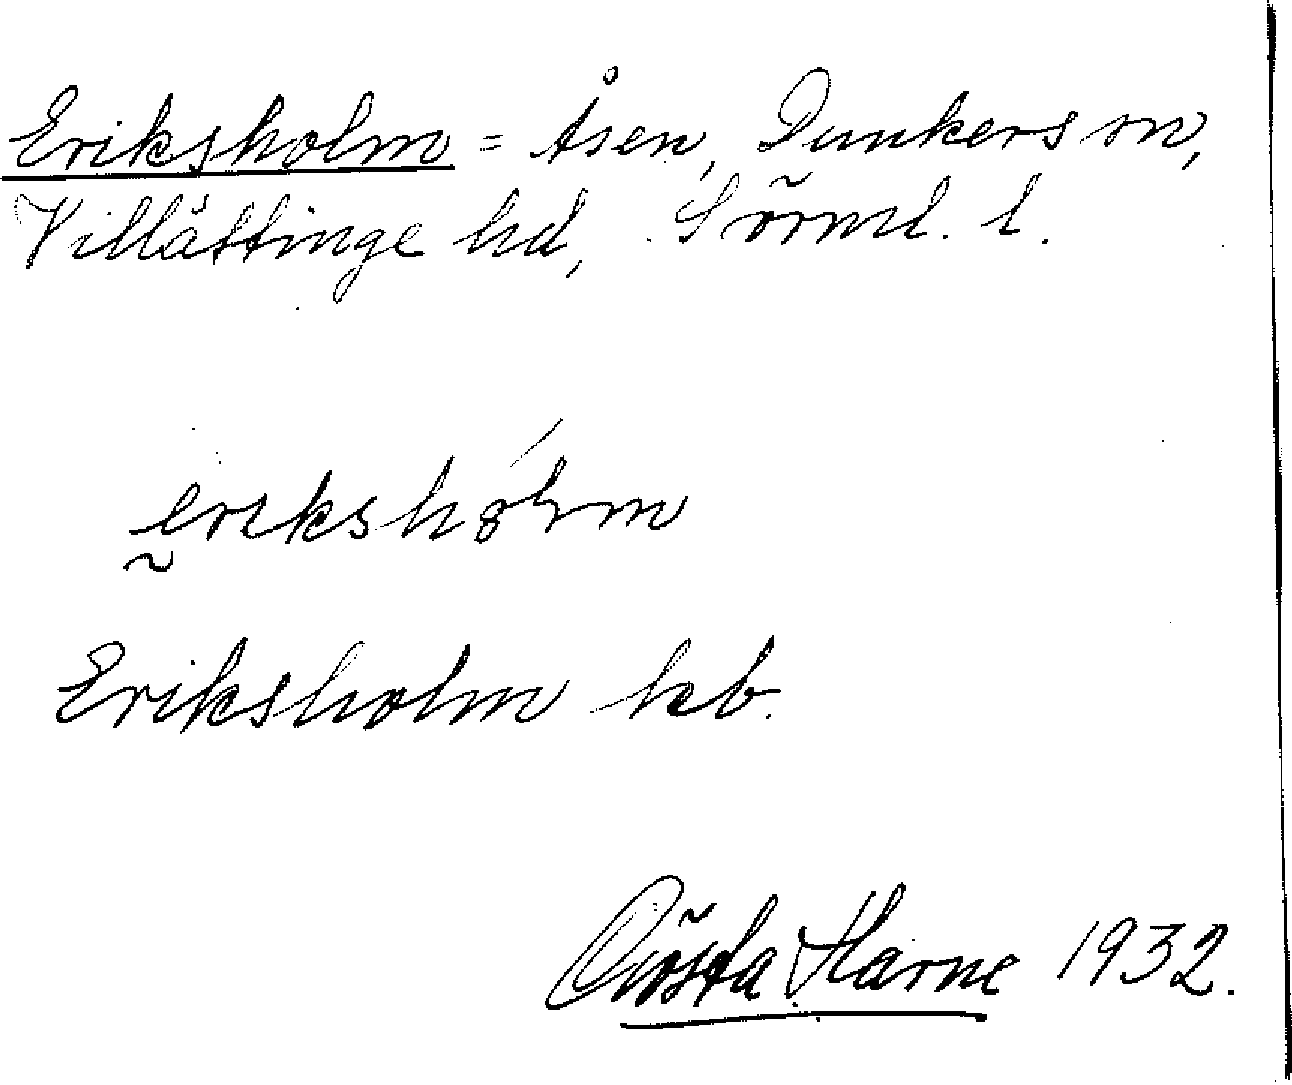 Eriksholm = Åsen, Dunkers sn,
Villåttinge hd, Sörml. l.
Eriksholm kb.
Gösta Harne 1932.